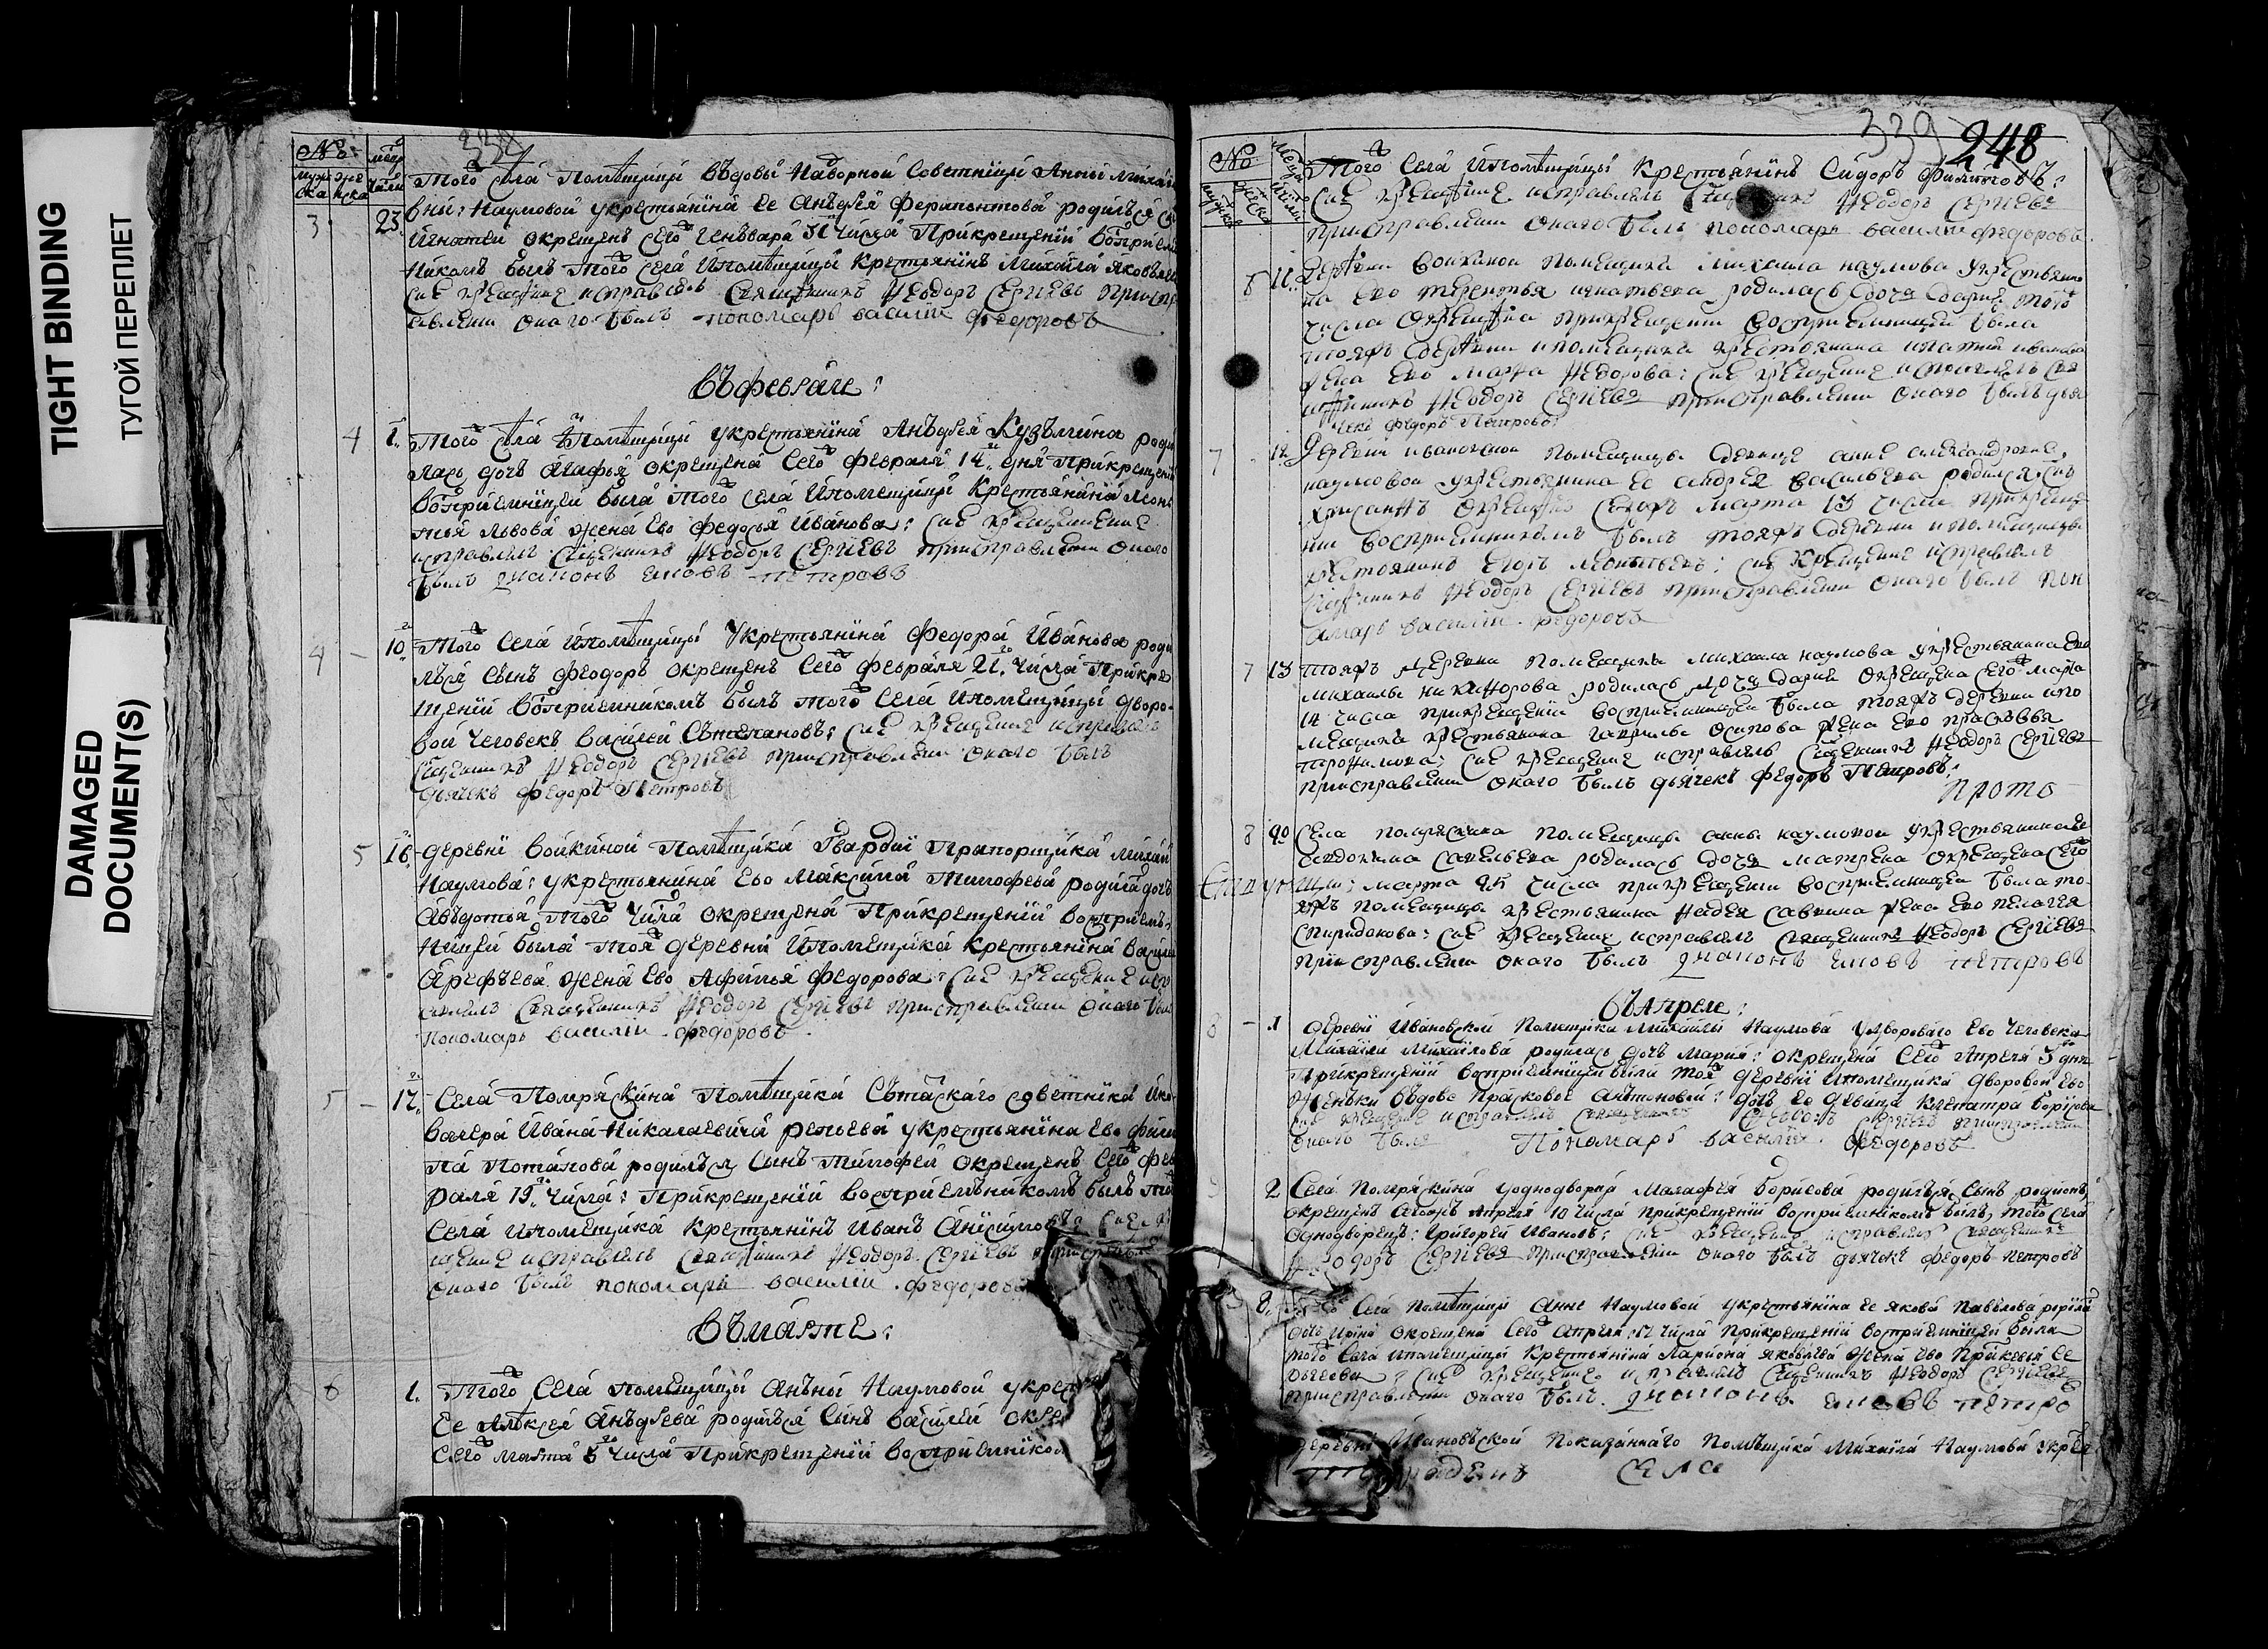 TIGHT BINDING
ТУГОЙ ПЕРЕПЛЕТ
DAMAGED
DOCUMENT(S)
№
муже женска
числа
3
23
Того села Помѣщицы вдовы Надворной Советницы Анны Михай
вны Наумовой укрестьянина ее Анъдрея Ферапонтова родился
Игнатей окрещенъ сего Генъваря 31 числа Прикрещении восприем
никомъ былъ того села ипомѣщицы крестьянинъ Михайла Яковъле
сие крещение исправлялъ священникъ Ѳеодоръ Сергіевъ присп
авлении онаго былъ пономарь василий федоровъ
въ февралѣ:
4
1
Того села ипомѣщицы укрестьянина Анъдрея Кузъмина роди
лась дочь Агафья окрещена сего февраля 14 дня прикрещении
восприемницей была того села ипомещицы крестьянина Леонъ
тья Львова жена ево федосья Иванова: сие крещение
исправлялъ священникъ Ѳеодоръ Сергіевъ присправлении онаго
былъ диаконъ Петровъ
4
10
Того села ипомѣщицы укрестьянина Федора Иванова роди
лъся сынъ Феодоръ окрещенъ сего февраля числа Прикре
щении восприемникомъ былъ того села ипомещицы дворо
вой человекъ Василей Стъпановъ: сие крещение исправлялъ
священникъ Ѳеодоръ Сергіевъ присправлении онаго былъ
дьячекъ Федоръ Петровъ
5
16
деревни Войкиной Помѣщика Гвардии Прапорщика Михай
Наумова: укрестьянина ево Максима Тимофеева родилась дочь
Авъдотья того числа окрещена Прикрещении восприем
ницей была тоя деревни ипомещика крестьянина Васил
Арефъева жена ево Афимья Федорова: сие крещение испр
авлялъ священникъ Ѳеодоръ Сергіевъ присправлении онаго был
пономарь василий федоровъ
5
17
Села Помряскина Помѣщика Статскаго советника ика
валера Ивана Николаевича Репьева укрестьянина ево Фили
па Потапова родилъся сынъ Тимофей окрещенъ сего фев
раля 19 числа: Прикрещении восприемъникомъ былъ то
села ипомещика крестьянинъ Иванъ Анисимовъ: сие
щение исправлялъ священникъ Ѳеодоръ Сергіевъ присправле
онаго былъ пономарь василий федоровъ
въ мартѣ:
6
1
Того села помещицы Анъны Наумовой укрес
ее Алѣксея Анъдреева родилъся сынъ Василей окре
сего марта 5 числа Прикрещении восприемнико
339
248
№
Того села ипомѣщицы крестьянинъ Сидоръ Филиповъ:
сие крещение исправлялъ священникъ Ѳеодоръ Сергіевъ
присправлении онаго былъ пономарь василий федоровъ
6
11
Деревни Войкиной помещика Михаила Наумова укрестьяни
на ево Терентья Игнатьева родилась дочь Дарья того
числа окрещена прикрещении восприемницей была
тояжъ деревни ипомещика крестьянина Игнатия Иванова
жена ево Марѳа Ѳедорова: сие крещение исправлялъ свя
щенникъ Ѳеодоръ Сергіевъ присправлении онаго былъ дья
чекъ Федоръ Петровъ
7
12
Деревни ивановской помещицы девице Анне Александровне
Наумовой укрестьянина ее Андрея Васильева родился сынъ
Хрисанѳъ окрещенъ сегожъ марта 13 числа прикреще
нии восприемникомъ былъ тояжъ деревни ипомещицы
крестьянинъ Егоръ Леонтьевъ: сие крещение исправлялъ
священникъ Ѳеодоръ Сергіевъ присправлении онаго былъ пон
амарь василии федоровъ
7
13
Тояжъ деревни помещика Михаила Наумова укрестьянина ево
Михайлы Никифорова родилась дочь Дарья окрещена сего марта
14 числа прикрещении восприемницей была тояжъ деревни ипо
мещика крестьянина Гаврилы Осипова жена ево Прасковья
Трофимова: сие крещение исправлялъ священникъ Ѳеодоръ Сергіевъ
присправлении онаго былъ дьячекъ Федоръ Петровъ:
Прото
8
20
Села помряскина помещицы анны наумовой укрестьянина ее
Евдокима Савельева родилась дочь Матрена окрещена сего
марта 25 числа прикрещении восприемницей была то
яжъ помещицы крестьянина Ѳадея Савина жена ево Пелагея
Спиридонова: сие крещение исправлялъ священникъ Ѳеодоръ Сергіевъ
присправлении онаго былъ диаконъ Петровъ
въ Апреле:
8
1
деревни Ивановской Помещика Михайлы Наумова удвороваго ево человека
Михайлы Михайлова родилась дочь Мария: окрещена сего Апреля 3 дня
Прикрещении восприемницей была тоя деревни ипомещика дворовой ево
женъки вдовы Прасковьи Антоновой: дочь ее девица Клеопатра Борисова
сие крещение исправлялъ священникъ Ѳеодоръ Сергіевъ присправлении
онаго былъ Пономарь василий федоровъ
9
2
Села Помряскина уоднодворца Малафея Борисова родилъся сынъ Родионъ
окрещенъ сегожъ Апреля 10 числа прикрещении восприемникомъ былъ того села
однодворецъ: Григорей Ивановъ: сие крещение исправлялъ священникъ
Ѳеодоръ Сергіевъ присправлении онаго былъ дьячекъ Федоръ Петровъ
9
8
Того села помѣщицы Анны Наумовой укрестьянина ее Якова Павълова родила
дочь Ирина окрещена сего Апреля 12 числа прикрещении восприемницей была
того села ипомещицы крестьянина Лариона Яковлева жена ево Пракевья
сие крещение исправлялъ священникъ Ѳеодоръ Сергіевъ
присправлении онаго былъ диаконъ Петро
деревни Ивановъской показаннаго помѣщика Михайла Наумова укре
села